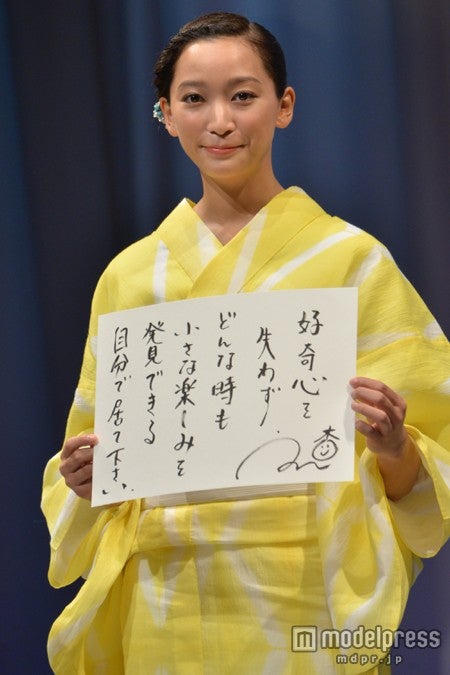 好奇心を
失わず!
どんな時も
小さな楽しみを
発見できる
自分で居て下さい。
杏
modelpress
mdpr.jp